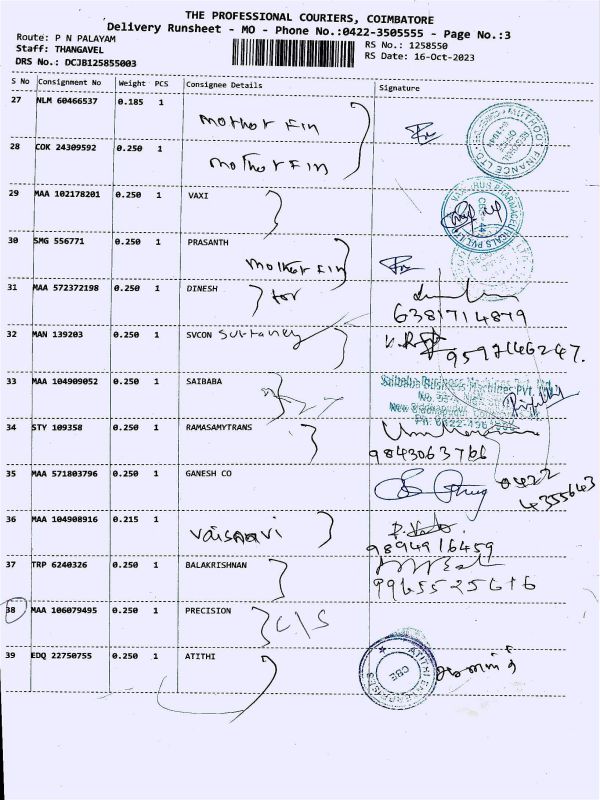 THE PROFESSIONAL COURIERS, COIMBATORE
Delivery Runsheet - MO - Phone No.:0422-3505555 - Page No.:3
Route: P N PALAYAM RS No.: 1258550
Staff: THANGAVEL RS Date: 16-Oct-2023
DRS No.: DCJB125855003
S No Consignment No Weight PCS Consignee Details Signature
27 NLM 60466537 0.185 1
mother Fin
28 COK 24309592 0.250 1
mother Fin
29 MAA 102178201 0.250 1 VAXI
30 SMG 556771 0.250 1 PRASANTH
mother Fin
31 MAA 572372198 0.250 1 DINESH
6381714879
32 MAN 139203 0.250 1 SVCON
9592146247.
33 MAA 104909052 0.250 1 SAIBABA
Saibaba Business Machines Pvt. Ltd.
34 STY 109358 0.250 1 RAMASAMYTRANS
9843063766
35 MAA 571803796 0.250 1 GANESH CO
0422
4355643
36 MAA 104908916 0.215 1
vaisnavi
9894916459
37 TRP 6240326 0.250 1 BALAKRISHNAN
9965525616
38 MAA 106079495 0.250 1 PRECISION
C/S
39 EDQ 22750755 0.250 1 ATITHI
ATITHI ENTERPRISES
CBE